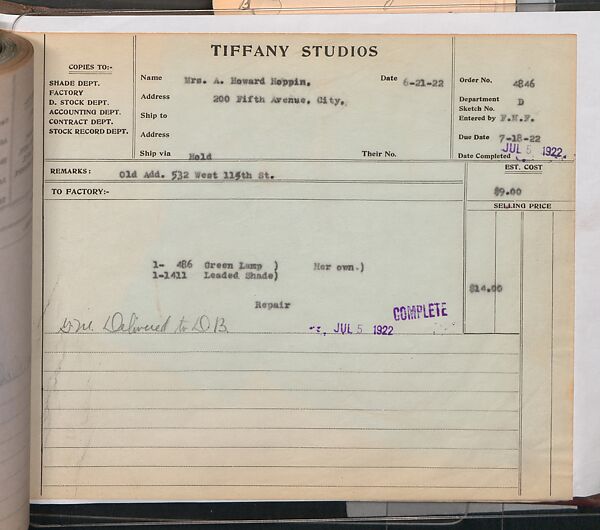 TIFFANY STUDIOS
COPIES TO:-
SHADE DEPT.
FACTORY
D. STOCK DEPT.
ACCOUNTING DEPT.
CONTRACT DEPT.
STOCK RECORD DEPT.
Name Mrs. A. Howard Hoppin. Date 6-21-22
Address 200 Fifth Avenue, City.
Ship to
Address
Ship via Hold Their No.
Order No. 4846
Department D
Sketch No.
Entered by F.M.F.
Due Date 7-18-22
Date Completed JUL 5 1922
REMARKS: Old Add. 532 West 115th St.
EST. COST
$9.00
TO FACTORY:-
SELLING PRICE
1- 486 Green Lamp ) Her own.)
1-1411 Leaded Shade)
$14.00
Repair
COMPLETE
Delivered to D.B. JUL 5 1922